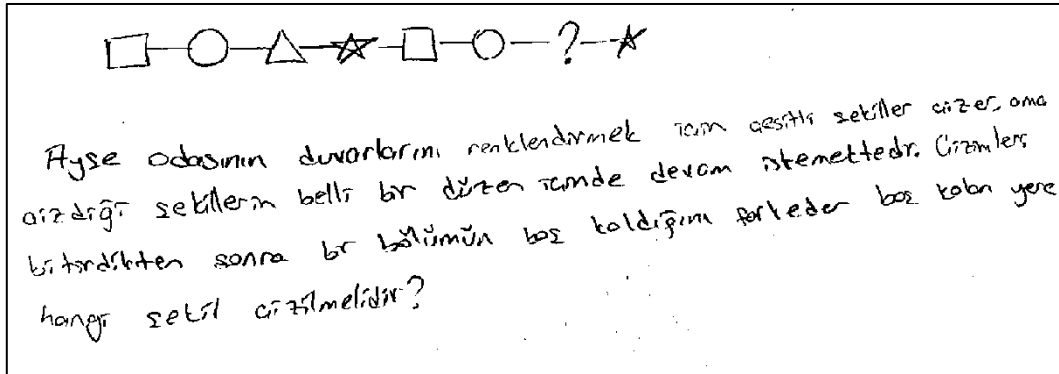 ?
Ayşe odasının duvarlarını renklendirmek için çeşitli şekiller çizer. ama
çizdiği şekillerin belli bir düzen içinde devam istemektedir. Çizimleri
bitirdikten sonra bir bölümün boş kaldığını farkeder boş kalan yere
hangi şekil çizilmelidir?